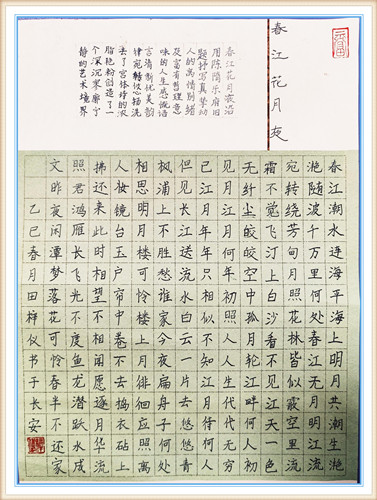 春江花月夜
春江花月夜沿
用陈隋乐府旧
题抒写真挚动
人的离情别绪
及富有哲理意
味的人生感慨语
言清新优美韵
律宛转悠扬洗
去了宫体诗的浓
脂艳粉创造了一
个深沉寥廓宁
静的艺术境界
春江潮水连海平海上明月共潮生滟
滟随波千万里何处春江无月明江流
宛转绕芳甸月照花林皆似霰空里流
霜不觉飞汀上白沙看不见江天一色
无纤尘皎皎空中孤月轮江畔何人初
见月江月何年初照人人生代代无穷
已江月年年只相似不知江月待何人
但见长江送流水白云一片去悠悠青
枫浦上不胜愁谁家今夜扁舟子何处
相思明月楼可怜楼上月徘徊应照离
人妆镜台玉户帘中卷不去捣衣砧上
拂还来此时相望不相闻愿逐月华流
照君鸿雁长飞光不度鱼龙潜跃水成
文昨夜闲潭梦落花可怜春半不还家
乙巳春月田梓仪书于长安